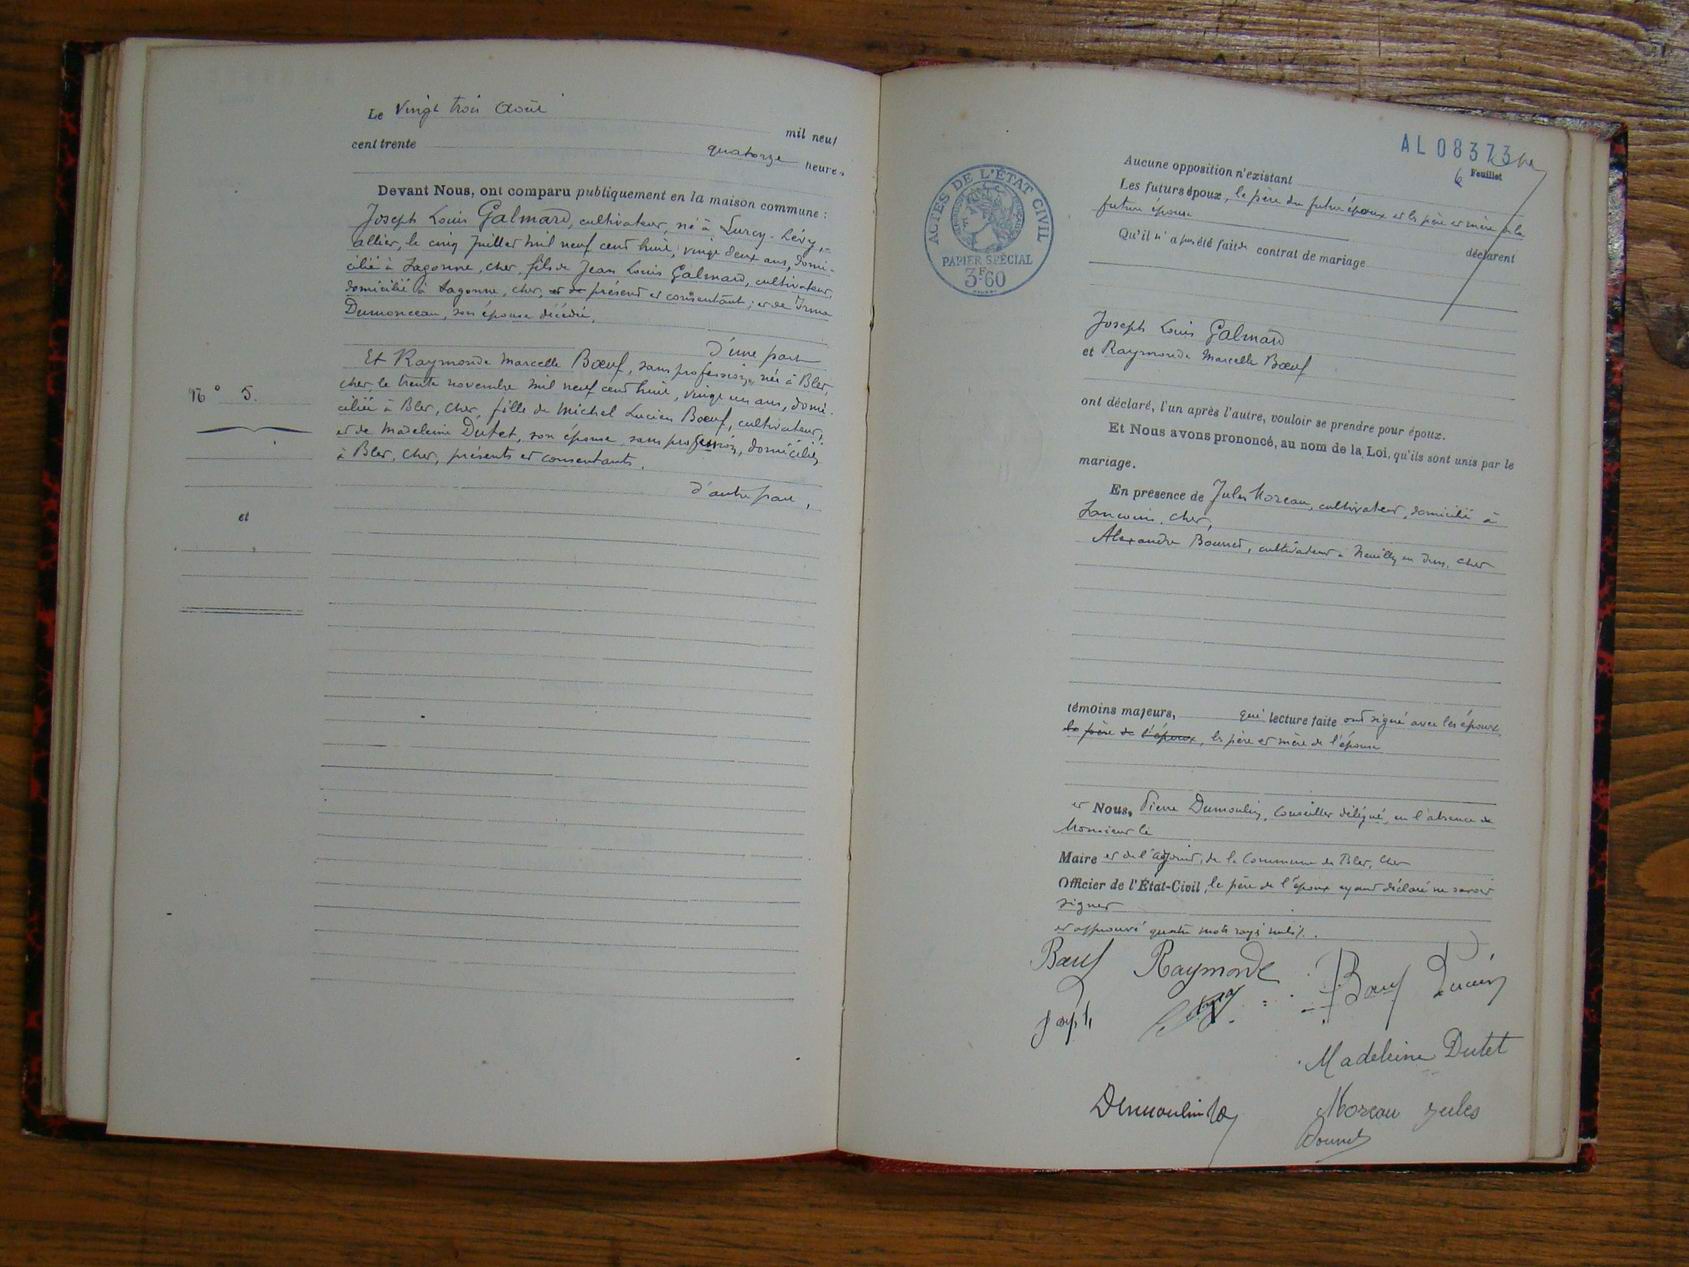 Le Vingt trois Août mil neuf
cent trente quatorze heures
Devant Nous, ont comparu publiquement en la maison commune :
Joseph Louis Galmard, cultivateur, né à Lurcy-Lévy,
allier, le cinq Juillet mil neuf cent huit, vingt deux ans, domi-
cilié à Sagonne, cher, fils de Jean Louis Galmard, cultivateur,
domicilié à Sagonne, cher, présent et consentant ; et de Irma
Dumonceau, son épouse décédée,
d'une part
Et Raymonde Marcelle Bœuf, sans profession, née à Blet,
cher, le trente novembre mil neuf cent huit, vingt un ans, domi-
ciliée à Blet, Cher, fille de Michel Lucien Bœuf, cultivateur,
et de Madeleine Dutet, son épouse, sans profession, domiciliés
à Blet, Cher, présents et consentants.
d'autre part,
N° 5.
et
AL 08373
6 Feuillet
ACTES DE L'ÉTAT CIVIL
PAPIER SPÉCIAL
3F60
Aucune opposition n'existant
Les futurs époux, le père du futur époux et les père et mère de la
future épouse
déclarent
Qu'il n'a pas été fait de contrat de mariage
Joseph Louis Galmard
et Raymonde Marcelle Bœuf
ont déclaré, l'un après l'autre, vouloir se prendre pour époux.
Et Nous avons prononcé, au nom de la Loi, qu'ils sont unis par le
mariage.
En présence de Jules Moreau, cultivateur, domicilié à
Sancoins, Cher,
Alexandre Bonnet, cultivateur à Neuilly en Dun, Cher
témoins majeurs, qui lecture faite ont signé avec les époux,
le père de l'époux, les père et mère de l'épouse
et Nous, Pierre Dumoulin, Conseiller délégué, en l'absence de
Monsieur le
Maire et de l'adjoint, de la Commune de Blet, Cher
Officier de l'État-Civil, le père de l'époux ayant déclaré ne savoir
signer
et approuvé quatre mots rayés nuls.
Bœuf Raymonde Bœuf Lucien
Joseph
Madeleine Dutet
Dumoulin Moreau Jules
Bonnet